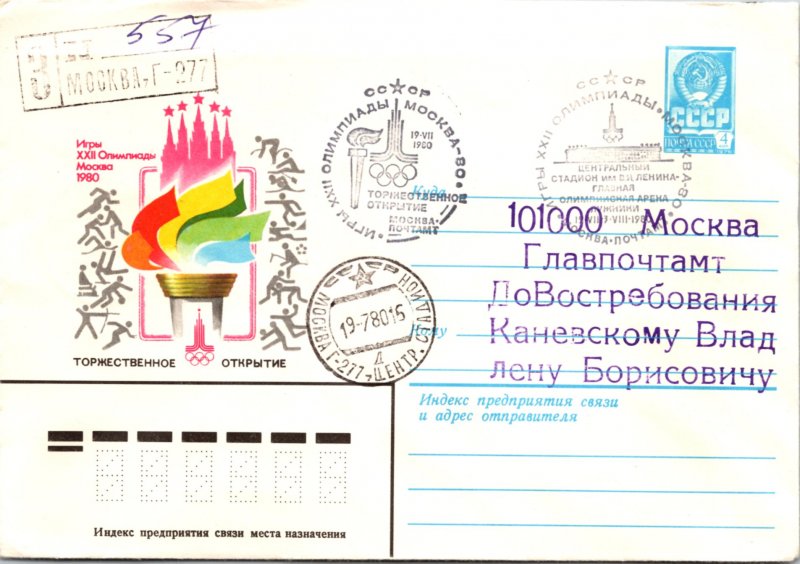 557
З П
МОСКВА, Г-277
Игры
XXII Олимпиады
Москва
1980
ТОРЖЕСТВЕННОЕ ОТКРЫТИЕ
СССР
ИГРЫ XXII ОЛИМПИАДЫ МОСКВА-80
19-VII
1980
ТОРЖЕСТВЕННОЕ
ОТКРЫТИЕ
МОСКВА-
ПОЧТАМТ
СССР
ИГРЫ XXII ОЛИМПИАДЫ МОСКВА-80
ЦЕНТРАЛЬНЫЙ
СТАДИОН ИМ. В.И. ЛЕНИНА-
ГЛАВНАЯ
ОЛИМПИЙСКАЯ АРЕНА
ЛУЖНИКИ
МОСКВА-ПОЧТАМТ
СССР
ПОЧТА СССР
4
СССР
МОСКВА Г-277, ЦЕНТР. СТАДИОН
19-78015
Д
Куда
101000 Москва
Главпочтамт
ДоВостребования
Кому
Каневскому Влад
лену Борисовичу
Индекс предприятия связи
и адрес отправителя
Индекс предприятия связи места назначения